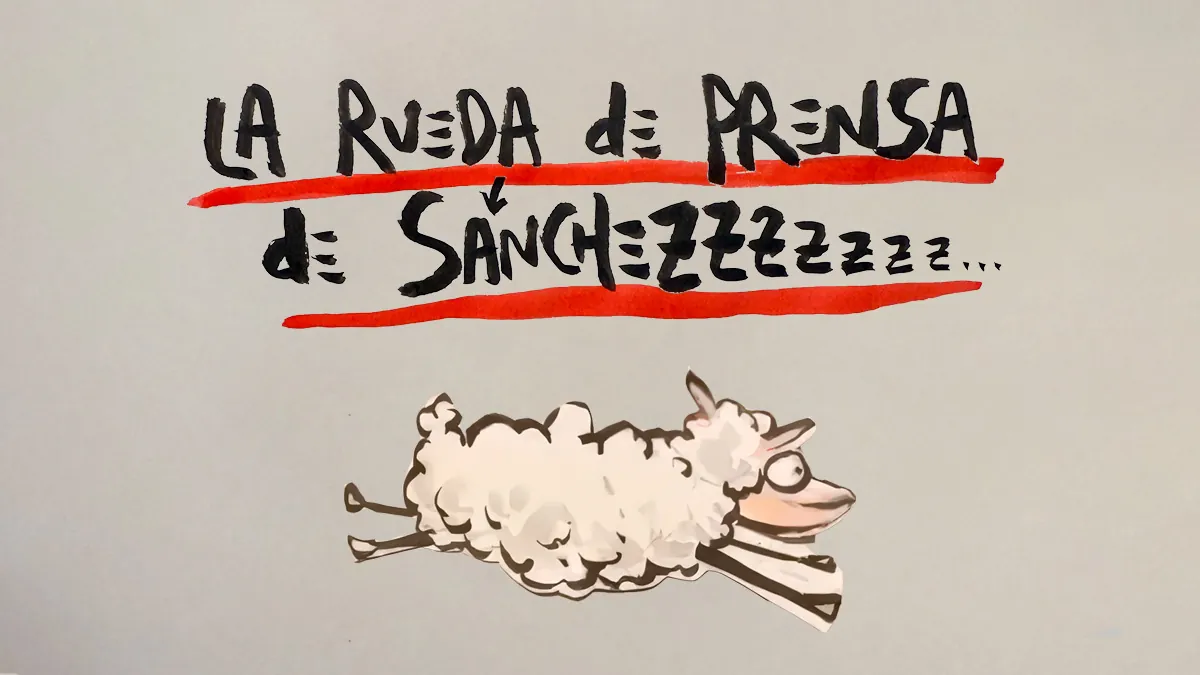 LA RUEDA de PRENSA
de SÁNCHEZZZZzzz...